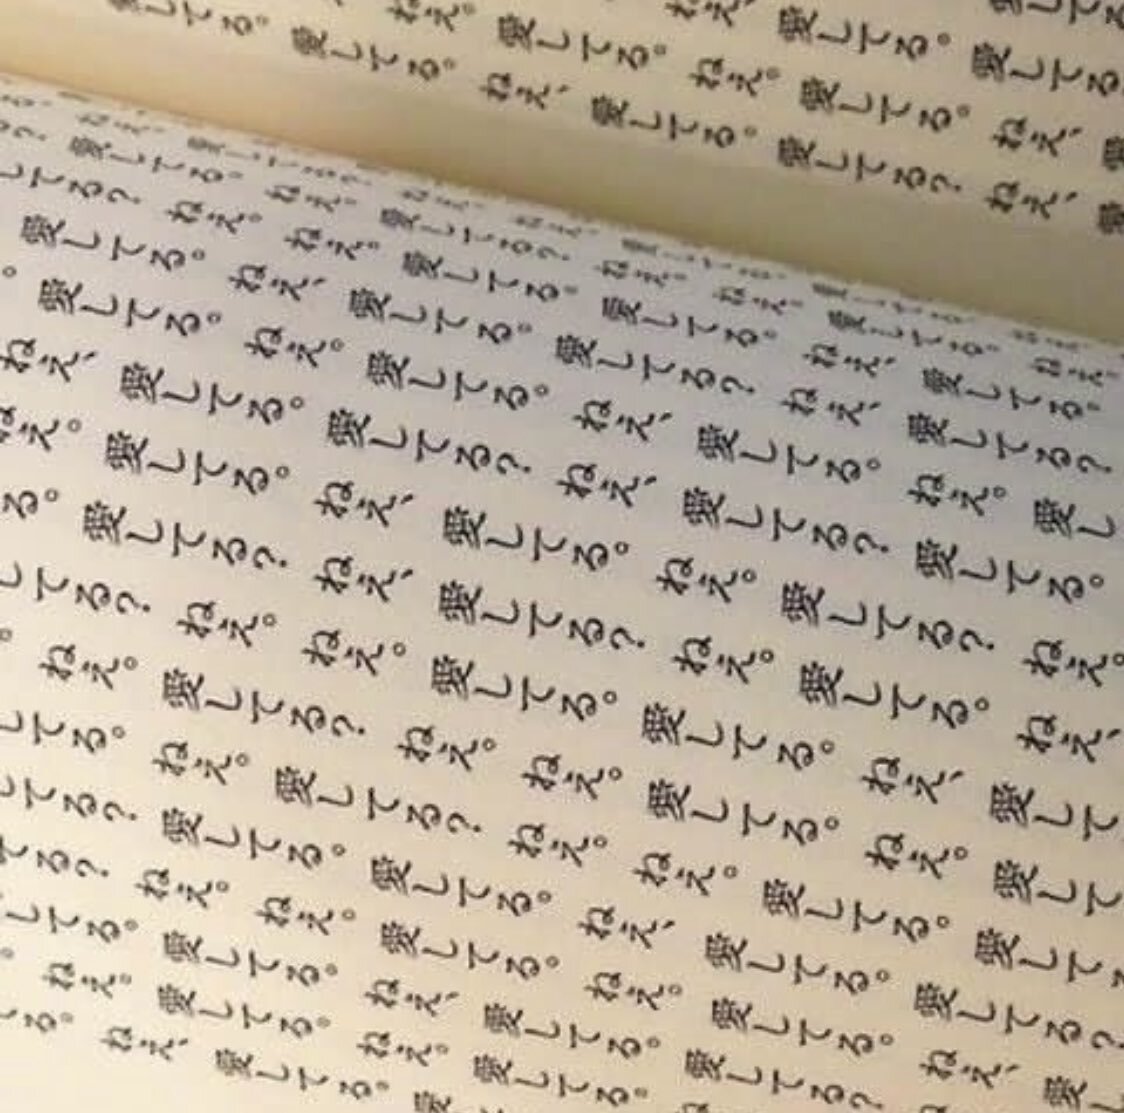 愛してる
ねえ、愛してる。愛してる
ねえ。愛してる。ねえ。愛してる。ねえ、愛
してる。愛してる。ねえ、愛してる。愛してる？ねえ、愛
ねえ、愛してる？ねえ、ねえ、愛してる。
る？愛してる。ねえ。愛してる？ねえ。ねえ。愛してる。ねえ。
してる？ねえ。ねえ。愛してる。愛してる。ねえ、愛してる。
愛してる。ねえ、愛してる。愛してる？ねえ、愛してる？
。愛してる。ねえ。愛してる。ねえ、愛してる。ねえ。愛し
ねえ、愛してる。愛してる？ねえ、愛してる？愛してる。
ねえ。愛してる。ねえ、愛してる。ねえ。愛してる？ねえ。
る。愛してる？ねえ、愛してる？ねえ。愛してる。ねえ、
してる？ねえ。ねえ。愛してる。愛してる。ねえ、愛して
。ねえ。愛してる？ねえ。ねえ。愛してる。ねえ。愛して
してる。ねえ。愛してる？ねえ。ねえ。愛してる。愛して
してる？愛してる。愛してる。ねえ、愛してる。愛してる？
てる？ねえ。ねえ。愛してる。ねえ。愛してる。ねえ、愛し
してる。愛してる。ねえ、愛してる。愛してる？
。ねえ。愛してる。ねえ。愛してる。
てる。ねえ、愛してる。愛